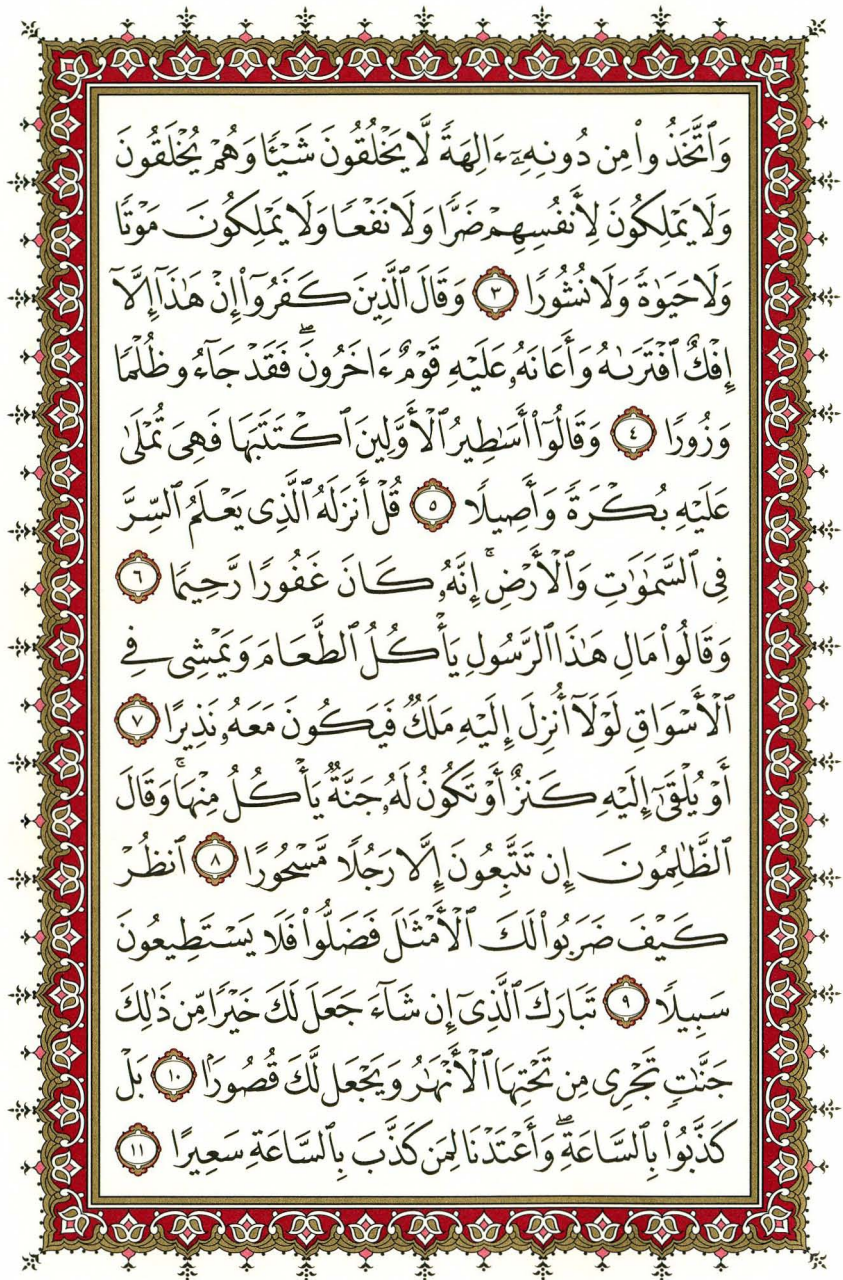 وَٱتَّخَذُواْ مِن دُونِهِۦٓ ءَالِهَةٗ لَّا يَخۡلُقُونَ شَيۡـٔٗا وَهُمۡ يُخۡلَقُونَ
وَلَا يَمۡلِكُونَ لِأَنفُسِهِمۡ ضَرّٗا وَلَا نَفۡعٗا وَلَا يَمۡلِكُونَ مَوۡتٗا
وَلَا حَيَوٰةٗ وَلَا نُشُورٗا ٣ وَقَالَ ٱلَّذِينَ كَفَرُوٓاْ إِنۡ هَٰذَآ إِلَّآ
إِفۡكٌ ٱفۡتَرَىٰهُ وَأَعَانَهُۥ عَلَيۡهِ قَوۡمٌ ءَاخَرُونَۖ فَقَدۡ جَآءُو ظُلۡمٗا
وَزُورٗا ٤ وَقَالُوٓاْ أَسَٰطِيرُ ٱلۡأَوَّلِينَ ٱكۡتَتَبَهَا فَهِيَ تُمۡلَىٰ
عَلَيۡهِ بُكۡرَةٗ وَأَصِيلٗا ٥ قُلۡ أَنزَلَهُ ٱلَّذِي يَعۡلَمُ ٱلسِّرَّ
فِي ٱلسَّمَٰوَٰتِ وَٱلۡأَرۡضِۚ إِنَّهُۥ كَانَ غَفُورٗا رَّحِيمٗا ٦
وَقَالُواْ مَالِ هَٰذَا ٱلرَّسُولِ يَأۡكُلُ ٱلطَّعَامَ وَيَمۡشِي فِي
ٱلۡأَسۡوَاقِ لَوۡلَآ أُنزِلَ إِلَيۡهِ مَلَكٞ فَيَكُونَ مَعَهُۥ نَذِيرًا ٧
أَوۡ يُلۡقَىٰٓ إِلَيۡهِ كَنزٌ أَوۡ تَكُونُ لَهُۥ جَنَّةٞ يَأۡكُلُ مِنۡهَاۚ وَقَالَ
ٱلظَّٰلِمُونَ إِن تَتَّبِعُونَ إِلَّا رَجُلٗا مَّسۡحُورًا ٨ ٱنظُرۡ
كَيۡفَ ضَرَبُواْ لَكَ ٱلۡأَمۡثَٰلَ فَضَلُّواْ فَلَا يَسۡتَطِيعُونَ
سَبِيلٗا ٩ تَبَارَكَ ٱلَّذِيٓ إِن شَآءَ جَعَلَ لَكَ خَيۡرٗا مِّن ذَٰلِكَ
جَنَّٰتٖ تَجۡرِي مِن تَحۡتِهَا ٱلۡأَنۡهَٰرُ وَيَجۡعَل لَّكَ قُصُورَۢا ١٠ بَلۡ
كَذَّبُواْ بِٱلسَّاعَةِۖ وَأَعۡتَدۡنَا لِمَن كَذَّبَ بِٱلسَّاعَةِ سَعِيرًا ١١